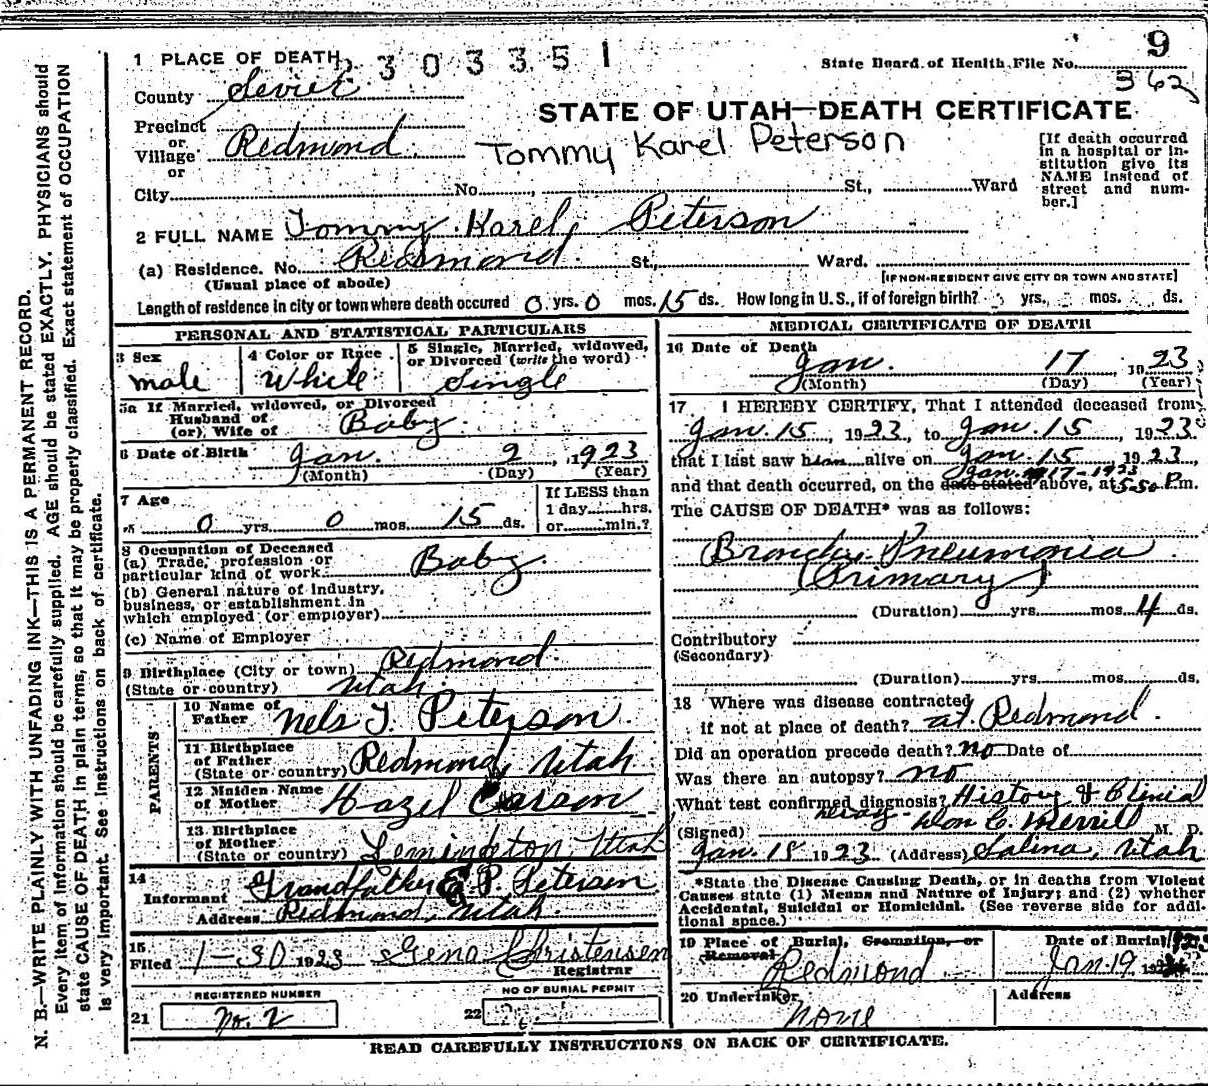 1 PLACE OF DEATH 2303351
9
State Board of Health File No. 362
County Sevier
STATE OF UTAH—DEATH CERTIFICATE
Precinct
or
Village Redmond
or
Tommy Karel Peterson
[If death occurred
in a hospital or in-
stitution give its
NAME instead of
street and num-
ber.]
City No. St., Ward
2 FULL NAME Tommy Karel Peterson
(a) Residence. No. Redmond St., Ward.
(Usual place of abode)
[IF NON-RESIDENT GIVE CITY OR TOWN AND STATE]
Length of residence in city or town where death occured 0 yrs. 0 mos. 15 ds. How long in U. S., if of foreign birth? yrs., mos. ds.
PERSONAL AND STATISTICAL PARTICULARS
3 Sex
male
4 Color or Race
White
5 Single, Married, widowed,
or Divorced (write the word)
Single
5a If Married, widowed, or Divorced
Husband of
(or) Wife of Baby
6 Date of Birth Jan. 2, 1923
(Month) (Day) (Year)
7 Age
0 yrs. 0 mos. 15 ds.
If LESS than
1 day hrs.
or min.?
8 Occupation of Deceased
(a) Trade, profession or
particular kind of work Baby
(b) General nature of Industry,
business, or establishment in
which employed (or employer)
(c) Name of Employer
9 Birthplace (City or town) Redmond
(State or country) Utah
PARENTS
10 Name of
Father Nels T. Peterson
11 Birthplace
of Father
(State or country) Redmond, Utah
12 Maiden Name
of Mother Hazel Carson
13 Birthplace
of Mother
(State or country) Lemington, Utah
14
Informant Grandfather E. P. Peterson
Address Redmond, Utah.
15
Filed 1-30 1923 Gena Christensen
Registrar
REGISTERED NUMBER
21 No. 2
NO OF BURIAL PERMIT
22
MEDICAL CERTIFICATE OF DEATH
16 Date of Death
Jan. 17, 1923
(Month) (Day) (Year)
17 I HEREBY CERTIFY, That I attended deceased from
Jan. 15, 1923, to Jan. 15, 1923
that I last saw him alive on Jan. 15, 1923,
Jan. 17-1923
and that death occurred, on the date stated above, at 5-50 P.m.
The CAUSE OF DEATH* was as follows:
Broncho Pneumonia
(Primary)
(Duration) yrs. mos. 4 ds.
Contributory
(Secondary)
(Duration) yrs. mos. ds.
18 Where was disease contracted
if not at place of death? at Redmond.
Did an operation precede death? no Date of
Was there an autopsy? no
What test confirmed diagnosis? History & Clinical
(Signed) Don C. Merrill M. D.
Jan. 18 1923 (Address) Salina, Utah
*State the Disease Causing Death, or in deaths from Violent
Causes state (1) Means and Nature of Injury; and (2) whether
Accidental, Suicidal or Homicidal. (See reverse side for addi-
tional space.)
19 Place of Burial, Cremation, or
Removal
Redmond
Date of Burial 1923
Jan. 19 192
20 Undertaker
none
Address
READ CAREFULLY INSTRUCTIONS ON BACK OF CERTIFICATE.
N. B.—WRITE PLAINLY WITH UNFADING INK—THIS IS A PERMANENT RECORD.
Every item of information should be carefully supplied. AGE should be stated EXACTLY. PHYSICIANS should
state CAUSE OF DEATH in plain terms, so that it may be properly classified. Exact statement of OCCUPATION
is very important. See Instructions on back of certificate.